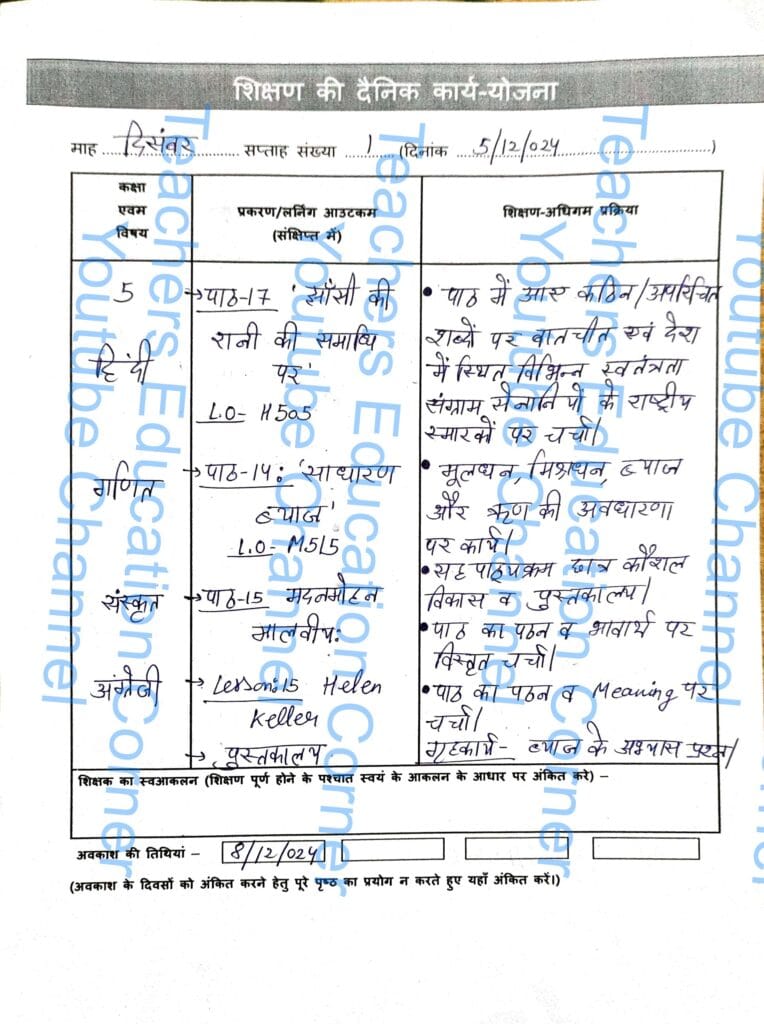 शिक्षण की दैनिक कार्य-योजना
माह दिसंबर सप्ताह संख्या 1 (दिनांक 5/12/024)
कक्षा एवम विषय
प्रकरण/लर्निंग आउटकम (संक्षिप्त में)
शिक्षण-अधिगम प्रक्रिया
5
हिंदी
→पाठ-17 'झाँसी की
रानी की समाधि
पर'
L.O- H505
• पाठ में आए कठिन/अपरिचित
शब्दों पर बातचीत एवं देश
में स्थित विभिन्न स्वतंत्रता
संग्राम सेनानियों के राष्ट्रीय
स्मारकों पर चर्चा।
गणित
→पाठ-14: 'साधारण
ब्याज'
L.O- M515
• मूलधन, मिश्रधन, ब्याज
और ऋण की अवधारणा
पर कार्य।
• सह पाठ्यक्रम छात्र कौशल
विकास व पुस्तकालय।
संस्कृत
→पाठ-15 मदनमोहन
मालवीय:
• पाठ का पठन व भावार्थ पर
विस्तृत चर्चा।
अंग्रेजी
→ Lesson:15 Helen
Keller
→ पुस्तकालय
• पाठ का पठन व Meaning पर
चर्चा।
गृहकार्य- ब्याज के अभ्यास प्रश्न।
शिक्षक का स्वआकलन (शिक्षण पूर्ण होने के पश्चात स्वयं के आकलन के आधार पर अंकित करे) –
अवकाश की तिथियां - 8/12/024
(अवकाश के दिवसों को अंकित करने हेतु पूरे पृष्ठ का प्रयोग न करते हुए यहाँ अंकित करें।)
Teachers Education Corner
Youtube Channel
Teachers Education Corner
Youtube Channel
Teachers Education Corner
Youtube Channel
Youtube Channel